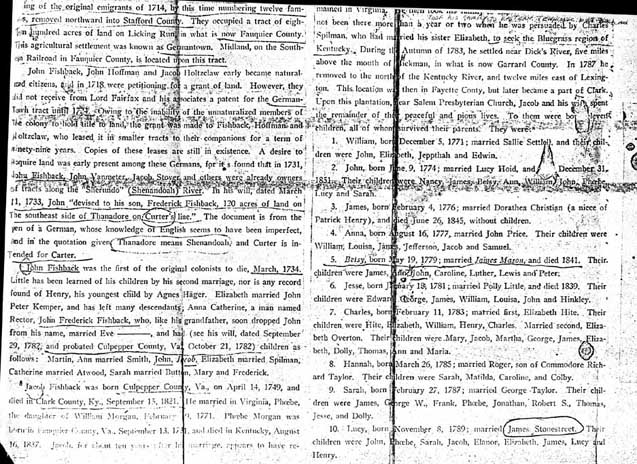 ing of the original emigrants of 1714, by this time numbering twelve fam-
ilies, removed northward into Stafford County. They occupied a tract of eigh-
teen hundred acres of land on Licking Run in what is now Fauquier County.
This agricultural settlement was known as Germantown. Midland, on the South-
ern Railroad in Fauquier County, is located upon this tract.
John Fishback, John Hoffman and Jacob Holtzclaw early became natural-
ized citizens, and in 1718 were petitioning for a grant of land. However, they
did not receive from Lord Fairfax and his associates a patent for the German-
town tract until 1724. Owing to the inability of the unnaturalized members of
the colony to hold title to land, the grant was made to Fishback, Hoffman and
Holtzclaw, who leased it in smaller tracts to their companions for a term of
ninety-nine years. Copies of these leases are still in existence. A desire to
acquire land was early present among these Germans, for it is found that in 1731,
John Fishback, John Vanmeter, Jacob Stover and others were already owners
of tracts along the "Sherundo" (Shenandoah) River. In his will, dated March
11, 1733, John "devised to his son, Frederick Fishback, 120 acres of land on
the southeast side of Thanadore on Carter's line." The document is from the
pen of a German, whose knowledge of English seems to have been imperfect,
and in the quotation given Thanadore means Shenandoah, and Curter is in-
tended for Carter.
John Fishback was the first of the original colonists to die, March, 1734.
Little has been learned of his children by his second marriage, nor is any record
found of Henry, his youngest child by Agnes Häger. Elizabeth married John
Peter Kemper, and has left many descendants; Anna Catherine, a man named
Rector, John Frederick Fishback, who, like his grandfather, soon dropped John
from his name, married Eve ———, and had (see his will, dated September
29, 1782, and probated Culpeper County, Va., October 21, 1782) children as
follows: Martin, Ann married Smith, John, Jacob, Elizabeth married Spilman,
Catherine married Atwood, Sarah married Button, Mary and Frederick.
Jacob Fishback was born Culpeper County, Va., on April 14, 1749, and
died in Clark County, Ky., September 15, 1821. He married in Virginia, Phœbe,
the daughter of William Morgan, February 9, 1771. Phœbe Morgan was
born in Fauquier County, Va., September 13, and died in Kentucky, August
16, 1837. Jacob, for about ten years after his marriage, appears to have re-
mained in Virginia. He then took his family
not been there more than a year or two when he was persuaded by Charles
Spilman, who had married his sister Elizabeth, to seek the Bluegrass region of
Kentucky. During the Autumn of 1783, he settled near Dick's River, five miles
above the mouth of Hickman, in what is now Garrard County. In 1787 he
removed to the north of the Kentucky River, and twelve miles east of Lexing-
ton. This location was then in Fayette County, but later became a part of Clark.
Upon this plantation, near Salem Presbyterian Church, Jacob and his wife spent
the remainder of their peaceful and pious lives. To them were born eleven
children, all of whom survived their parents. They were:
1. William, born December 5, 1771; married Sallie Settle, and their chil-
dren were John, Elizabeth, Jeppthah and Edwin.
2. John, born June 9, 1774; married Lucy Hoid, and December 31,
1851. Their children were Nancy, James, Betsy, Ann, William, John, Phœbe,
Lucy and Sarah.
3. James, born February 4, 1776; married Dorothea Christian (a niece of
Patrick Henry), and died June 26, 1845, without children.
4. Anna, born August 16, 1777, married John Price. Their children were
William, Louisa, James, Jefferson, Jacob and Samuel.
5. Betsy, born May 19, 1779; married James Mason, and died 1841. Their
children were James, Ann, John, Caroline, Luther, Lewis and Peter.
6. Jesse, born January 18, 1781; married Polly Little, and died 1839. Their
children were Edward, George, James, William, Louisa, John and Hinkley.
7. Charles, born February 11, 1783; married first, Elizabeth Hite. Their
children were Hite, Elizabeth, William, Henry, Charles. Married second, Eliza-
beth Overton. Their children were Mary, Jacob, Martha, George, James, Eliza-
beth, Dolly, Thomas, Ann and Maria.
8. Hannah, born March 26, 1785; married Roger, son of Commodore Rich-
ard Taylor. Their children were Sarah, Matilda, Caroline, and Colby.
9. Sarah, born February 27, 1787; married George Taylor. Their chil-
dren were James, George W., Frank, Phœbe, Jonathan, Robert S., Thomas,
Jesse, and Dolly.
10. Lucy, born November 8, 1789; married James Stonestreet. Their
children were John, Phœbe, Sarah, Jacob, Elanor, Elizabeth, James, Lucy and
Henry.